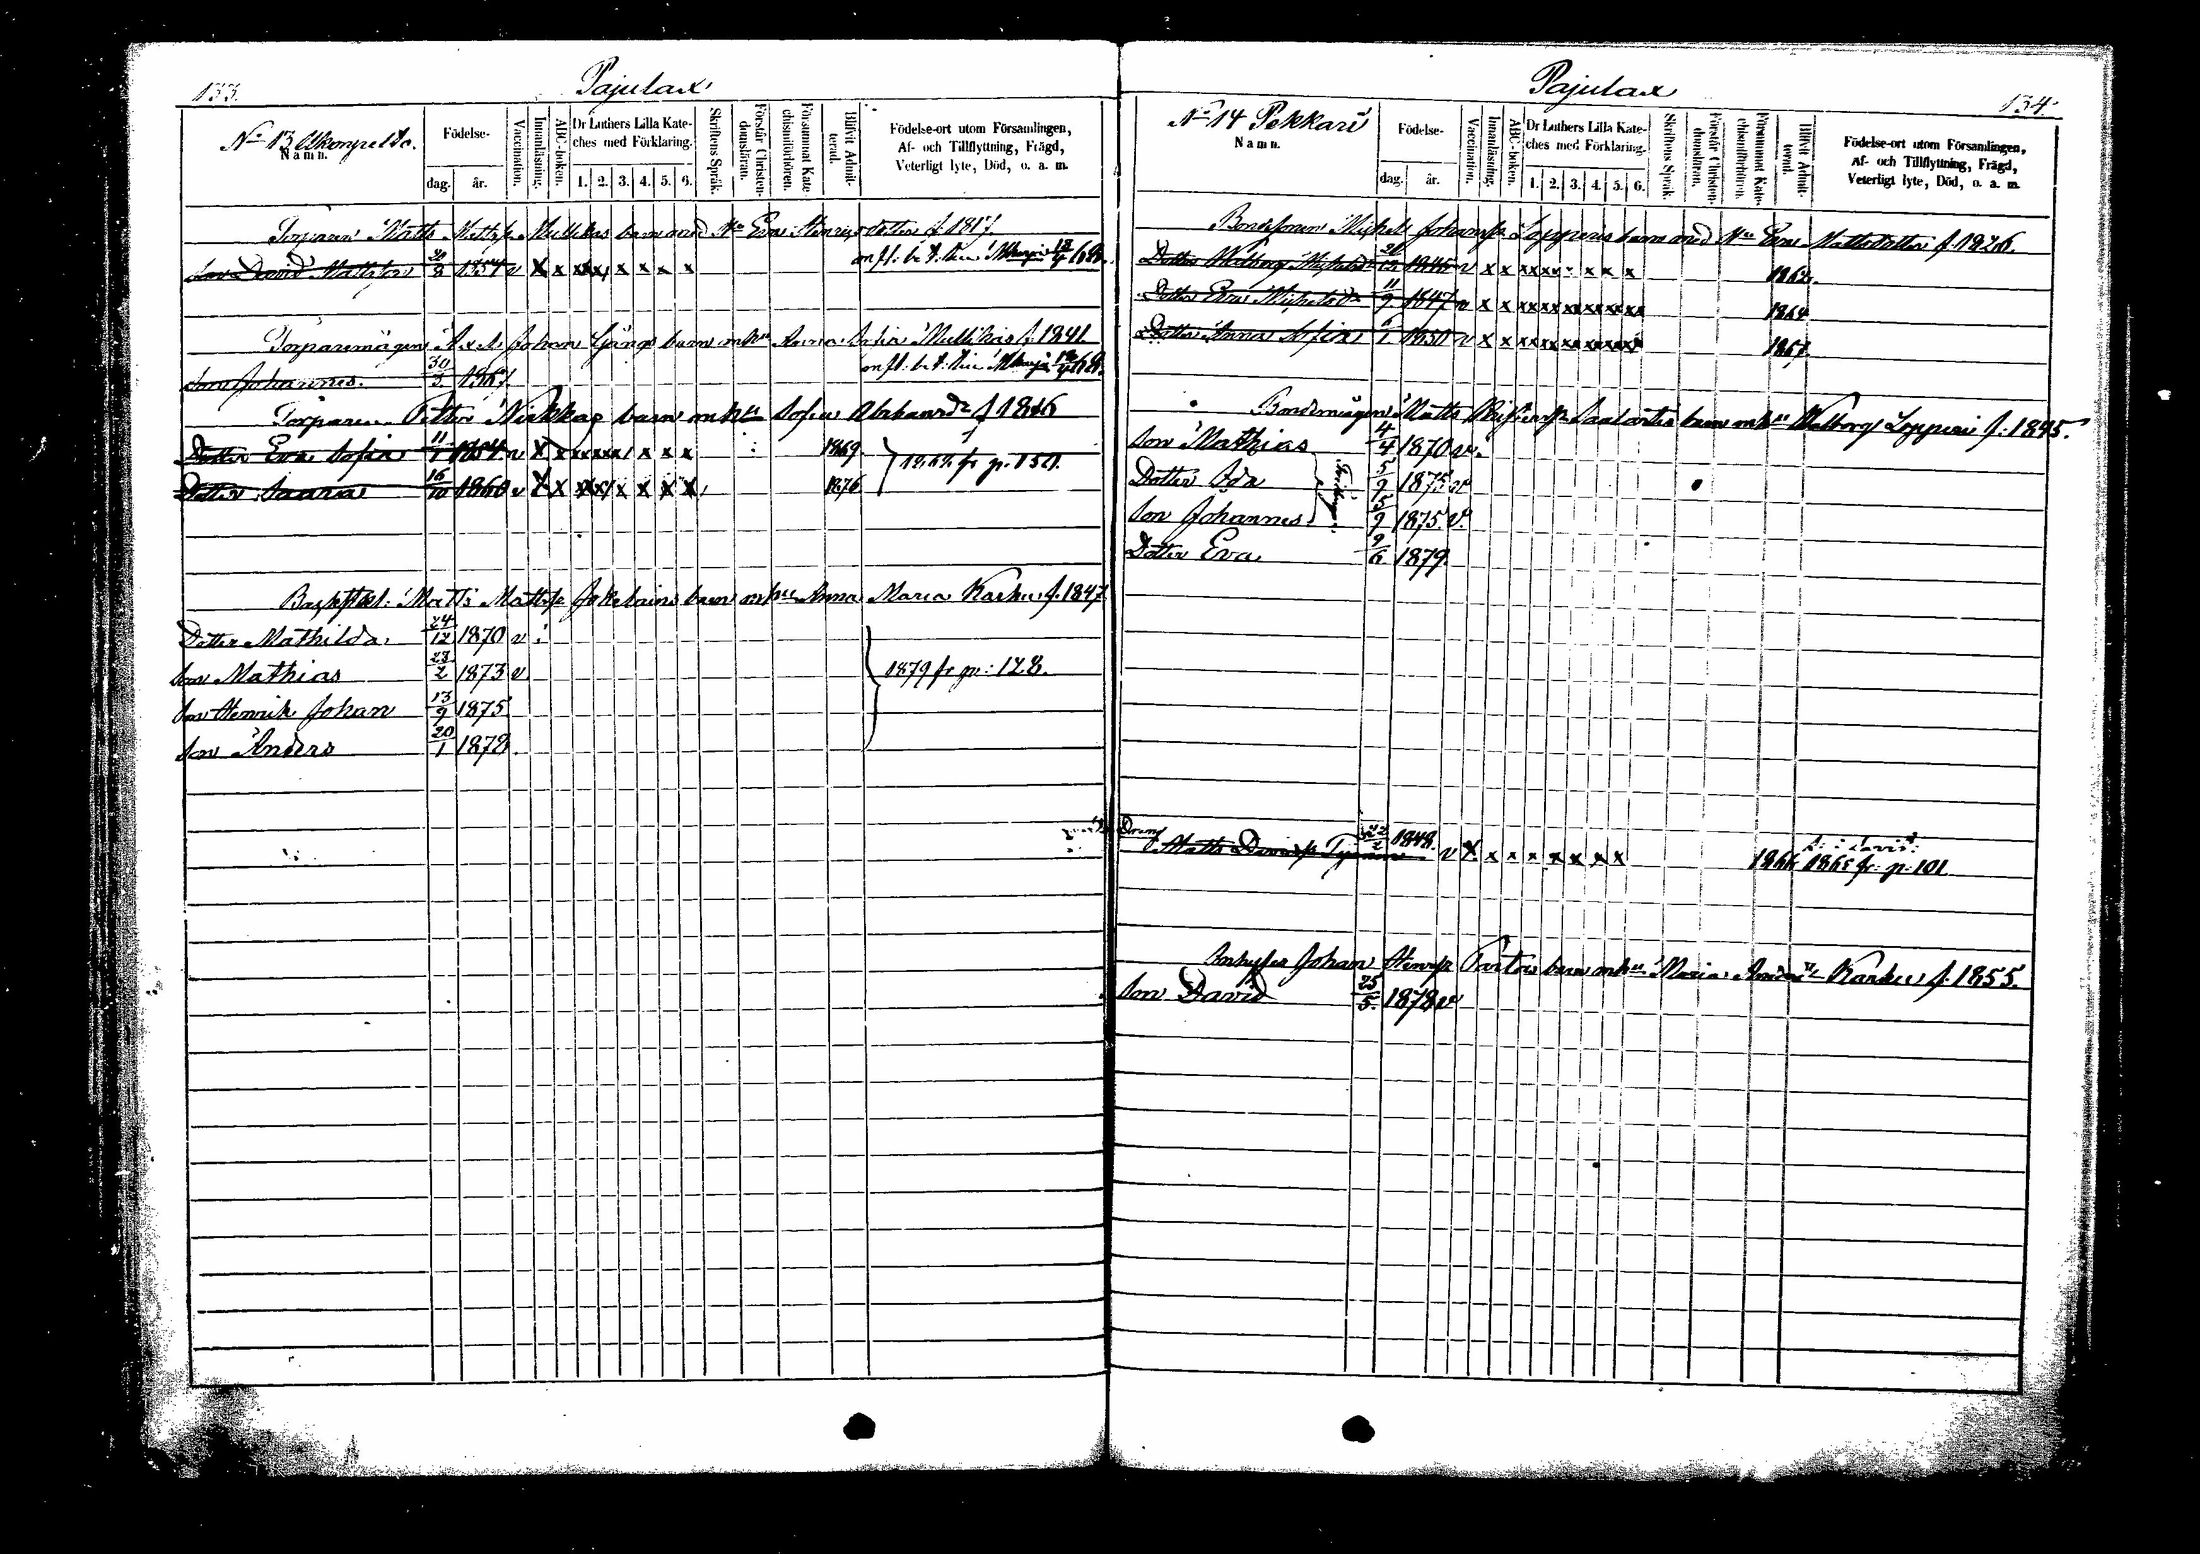 133.
Pajulax
No 13 Ukonpelto.
Namn.
Födelse-
dag.
år.
Vaccination.
Innanläsning.
ABC-boken.
Dr Luthers Lilla Kate-
ches med Förklaring.
1. 2. 3. 4. 5. 6.
Skriftens Språk.
Förstår Christen-
domsläran.
Försummat Kate-
chismiförhören.
Blifvit Admit-
terad.
Födelse-ort utom Församlingen,
Af- och Tillflyttning, Frägd,
Veterligt lyte, Död, o. a. m.
Torparen Matts Mattsp Mullikas barn med Hu Eva Henriksdotter f. 1817.
Son David Mattsson 20/8 1854 v x x x x x x x x
Torparemågen Johan Gångs barn m hu Anna Sofia Mullikas f. 1841.
Son Johannes. 30/3 1867.
Torparen Petter Niskkas barn m hu Sofia Abrahamsdr f 1826
Dotter Eva Sofia 11/1 1854 v x x x x x x x x 1869
Dotter Saara 16/10 1860 v x x x x x x x x 1876
1868 fr p. 150.
Matts Mattsp Jokelains barn m hu Anna Maria Karhu f. 1847
Dotter Mathilda 24/12 1870 v
Son Mathias 23/2 1873 v
Son Henrik Johan 13/9 1875
Son Anders 20/1 1878.
1879 fr p: 128.
Pajulax
134.
No 14 Pekkari
Namn.
Födelse-
dag.
år.
Vaccination.
Innanläsning.
ABC-boken.
Dr Luthers Lilla Kate-
ches med Förklaring.
1. 2. 3. 4. 5. 6.
Skriftens Språk.
Förstår Christen-
domsläran.
Försummat Kate-
chismiförhören.
Blifvit Admit-
terad.
Födelse-ort utom Församlingen,
Af- och Tillflyttning, Frägd,
Veterligt lyte, Död, o. a. m.
Bondesonen Michel Johansp Lopperis barn med Hu Eva Mattsdotter f. 1826.
Dotter Walborg Michelsdr 1845 v x x x x x x x x 1862.
Dotter Eva Michelsdr 11/9 1847 v x x x x x x x x 1864
Dotter Anna Sofia 6/1 1850 v x x x x x x x x 1867.
Bondemågen Matts barn m hu Walborg Lopperi f. 1845.
Son Mathias 4/4 1870 v.
Dotter Ida 5/9 1875 v
Son Johannes 5/9 1875. v.
Tvillingar
Dotter Eva 9/6 1879.
Dreng
Matts Davidsp 22/2 1848. v x x x x x x x x 1866 1865 fr. p. 101
Inhyses Johan Henrsp Partos barn m hu Maria Andersdr Karhu f. 1855.
Son David 25/5. 1878 v